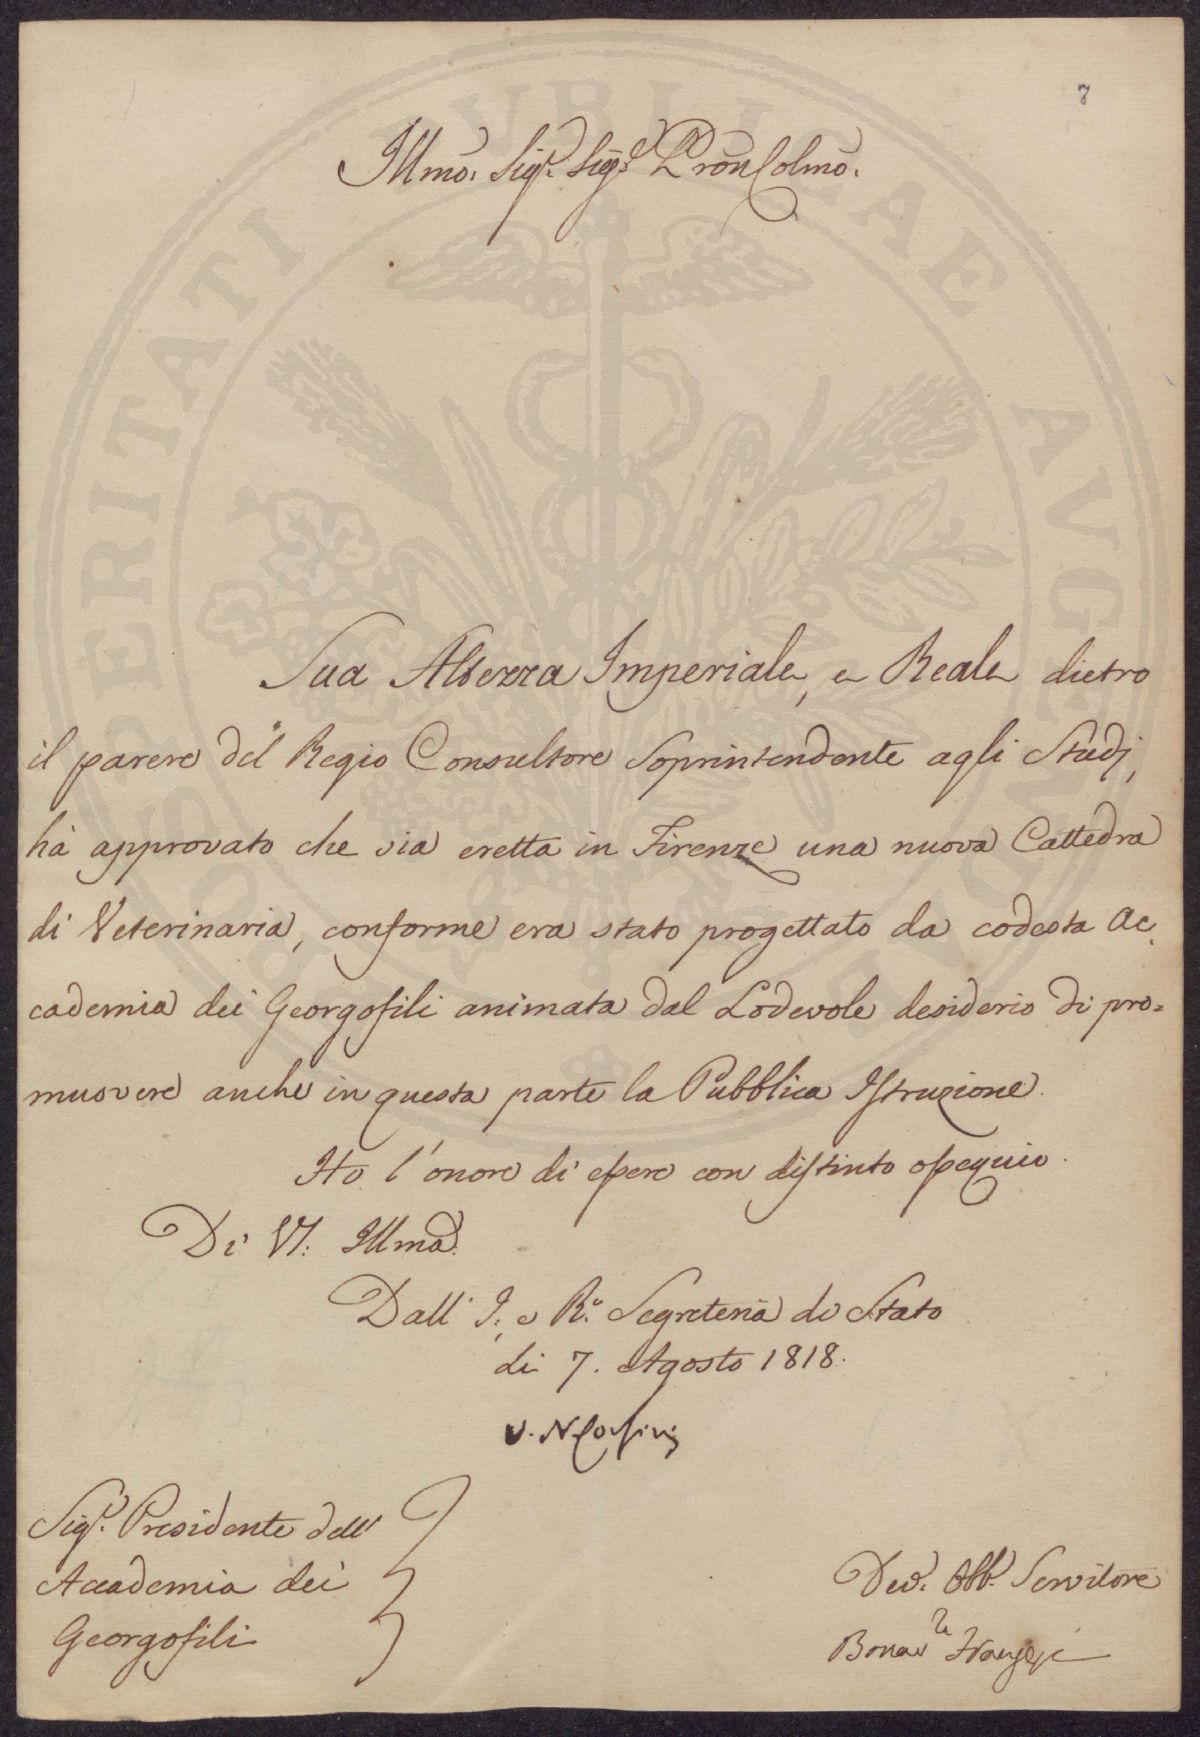 7
Illmo. Sigr. Sigr. Pron Colmo.
Sua Altezza Imperiale, e Reale dietro
il parere del Regio Consultore Soprintendente agli Studj,
hà approvato che sia eretta in Firenze una nuova Cattedra
di Veterinaria, conforme era stato progettato da codesta Ac-
cademia dei Georgofili animata dal Lodevole desiderio di pro=
muovere anche in questa parte la Pubblica Istruzione.
Ho l'onore di essere con distinto ossequio.
Di VS: Illma.
Dall' I. e R. Segreteria di Stato
li 7. Agosto 1818.
V. N Corsini
Sigr. Presidente dell'
Accademia dei
Georgofili
Dev. Obb. Servitore
Bonav
PROSPERITATI PUBLICAE AUGENDAE